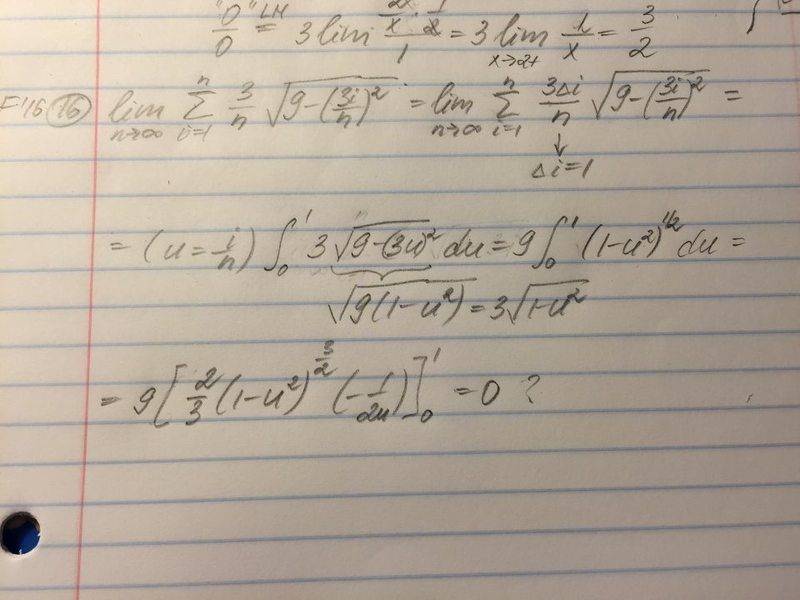 "0/0" LH= 3 lim 1 = 3 lim x→2+ 1/x = 3/2
F'16 (16) lim n→∞ Σ i=1 n 3/n √(9-(3i/n)²) = lim n→∞ Σ i=1 n 3Δi/n √(9-(3i/n)²) =
↓
Δi=1
= (u = i/n) ∫₀¹ 3 √(9-(3u)²) du = 9 ∫₀¹ (1-u²)^1/2 du =
√(9(1-u²)) = 3√(1-u²)
= 9 [ 2/3 (1-u²)^3/2 (-1/2u) ]₀¹ = 0 ?